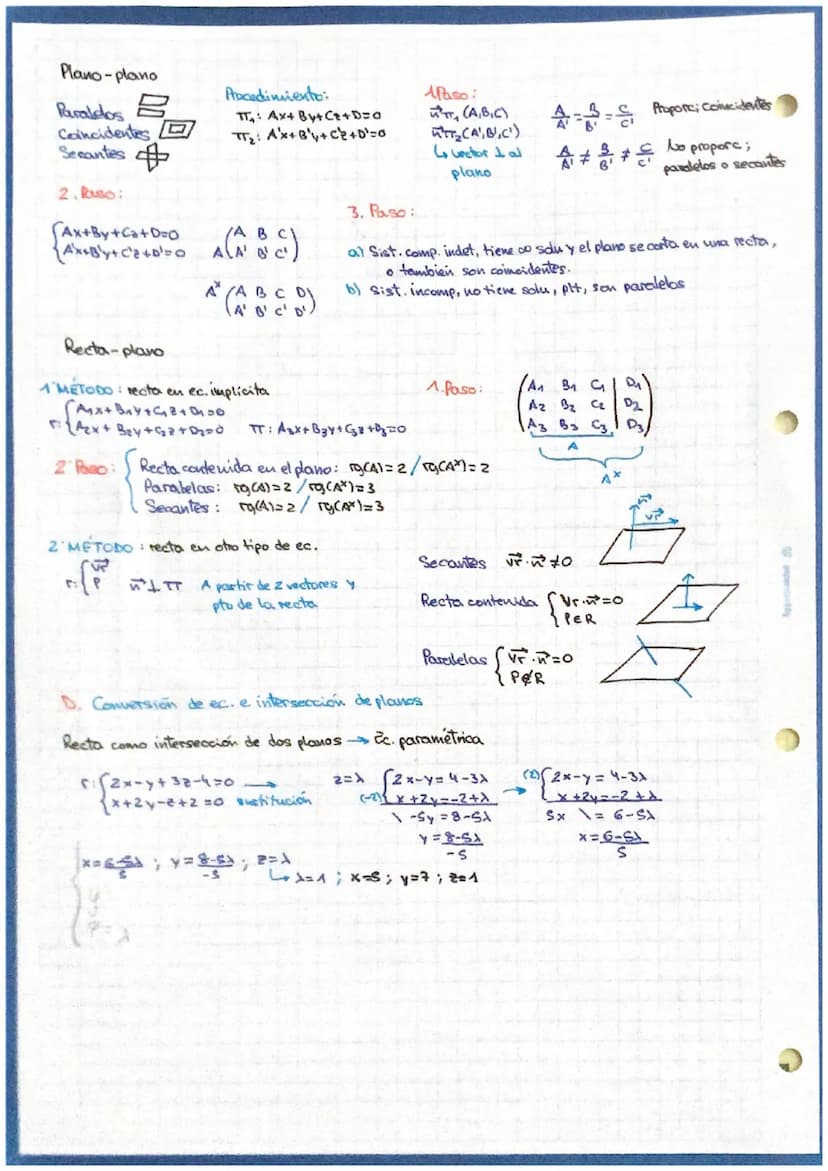 Plano-plano
Paralelos
Coincidentes
Secantes
Procedimiento:
π₁: Ax+By+Cz+D=0
π₂: A'x+B'y+C'z+D'=0
1.Paso:
n⃗π₁ (A,B,C)
n⃗π₂ (A',B',C')
↳ vector ⊥ al
plano
A/A' = B/B' = C/C' Proporc; coincidentes
A/A' ≠ B/B' ≠ C/C' No proporc;
paralelos o secantes
2. Paso:
{Ax+By+Cz+D=0
{A'x+B'y+C'z+D'=0
A (A B C)
(A' B' C')
A* (A B C D)
(A' B' C' D')
3. Paso:
a) Sist. comp. indet, tiene ∞ solu y el plano se corta en una recta,
o también son coincidentes.
b) Sist. incomp, no tiene solu, ptt, son paralelos
Recta-plano
1ºMÉTODO: recta en ec. implícita
r: {A₁x+B₁y+C₁z+D₁=0
{A₂x+B₂y+C₂z+D₂=0 π: A₃x+B₃y+C₃z+D₃=0
1.Paso:
(A₁ B₁ C₁ | D₁)
(A₂ B₂ C₂ | D₂)
(A₃ B₃ C₃ | D₃)
A
A*
2ºPaso: { Recta contenida en el plano: rg(A)=2 / rg(A*)=2
Paralelas: rg(A)=2 / rg(A*)=3
Secantes: rg(A)=2 / rg(A*)=3
2ºMÉTODO: recta en otro tipo de ec.
r: {v⃗r
{P n⃗⊥π A partir de 2 vectores y
pto de la recta
Secantes v⃗r·n⃗≠0
n⃗
v⃗r
Recta contenida {v⃗r·n⃗=0
{P∈R
Paralelas {v⃗r·n⃗=0
{P∉R
D. Conversión de ec. e intersección de planos
Recta como intersección de dos planos → Ec. paramétrica
r: {2x-y+3z-4=0 →
{x+2y-z+2=0 sustitución
z=λ {2x-y=4-3λ
(-2){x+2y=-2+λ
\ -5y=8-5λ
y=8-5λ/-5
→
(2){2x-y=4-3λ
{x+2y=-2+λ
5x \ = 6-5λ
x=6-5λ/5
x=6-5λ/5 ; y=8-5λ/-5 ; z=λ
↳ λ=1 ; x=5 ; y=7 ; z=1